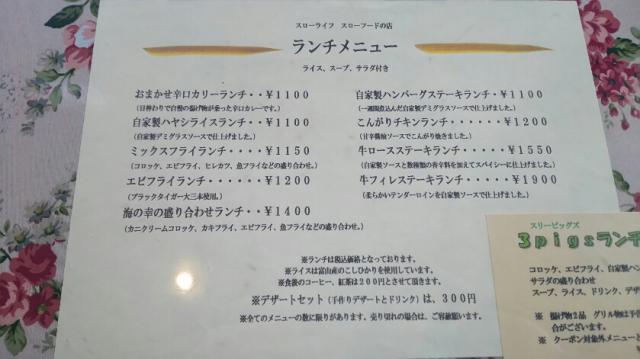 スローライフ スローフードの店
ランチメニュー
ライス、スープ、サラダ付き
おまかせ辛口カリーランチ・・¥1100
(日替わりで自慢の揚げ物が乗った辛口カレーです。)
自家製ハヤシライスランチ・・¥1100
(自家製デミグラスソースで仕上げました。)
ミックスフライランチ・・・¥1150
(コロッケ、エビフライ、ヒレカツ、魚フライなどの盛り合わせ。)
エビフライランチ・・・・・・¥1200
(ブラックタイガー大三本使用。)
海の幸の盛り合わせランチ・・¥1400
(カニクリームコロッケ、カキフライ、エビフライ、魚フライなどの盛り合わせ。)
自家製ハンバーグステーキランチ・¥1100
(一週間煮込んだ自家製デミグラスソースで仕上げました。)
こんがりチキンランチ・・・・・・¥1200
(甘辛醤油ソースでこんがり焼きました。)
牛ロースステーキランチ・・・・・¥1550
(自家製ソースと数種類の香辛料を加えてスパイシーに仕上げました。)
牛フィレステーキランチ・・・・・¥1900
(柔らかいテンダーロインを自家製ソースで仕上げました。)
※ランチは税込価格となっております。
※ライスは富山産のこしひかりを使用しています。
※食後のコーヒー、紅茶は200円とさせて頂きます。
※デザートセット(手作りデザートとドリンク)は、300円
※全てのメニューの数に限りがあります。売り切れの場合は、ご容赦願います。
スリーピッグズ
3pigsランチ
コロッケ、エビフライ、自家製ハン
サラダの盛り合わせ
スープ、ライス、ドリンク、デザ
※ 揚げ物2品 グリル物は予告
合がございます。
※ クーポン対象外メニュー